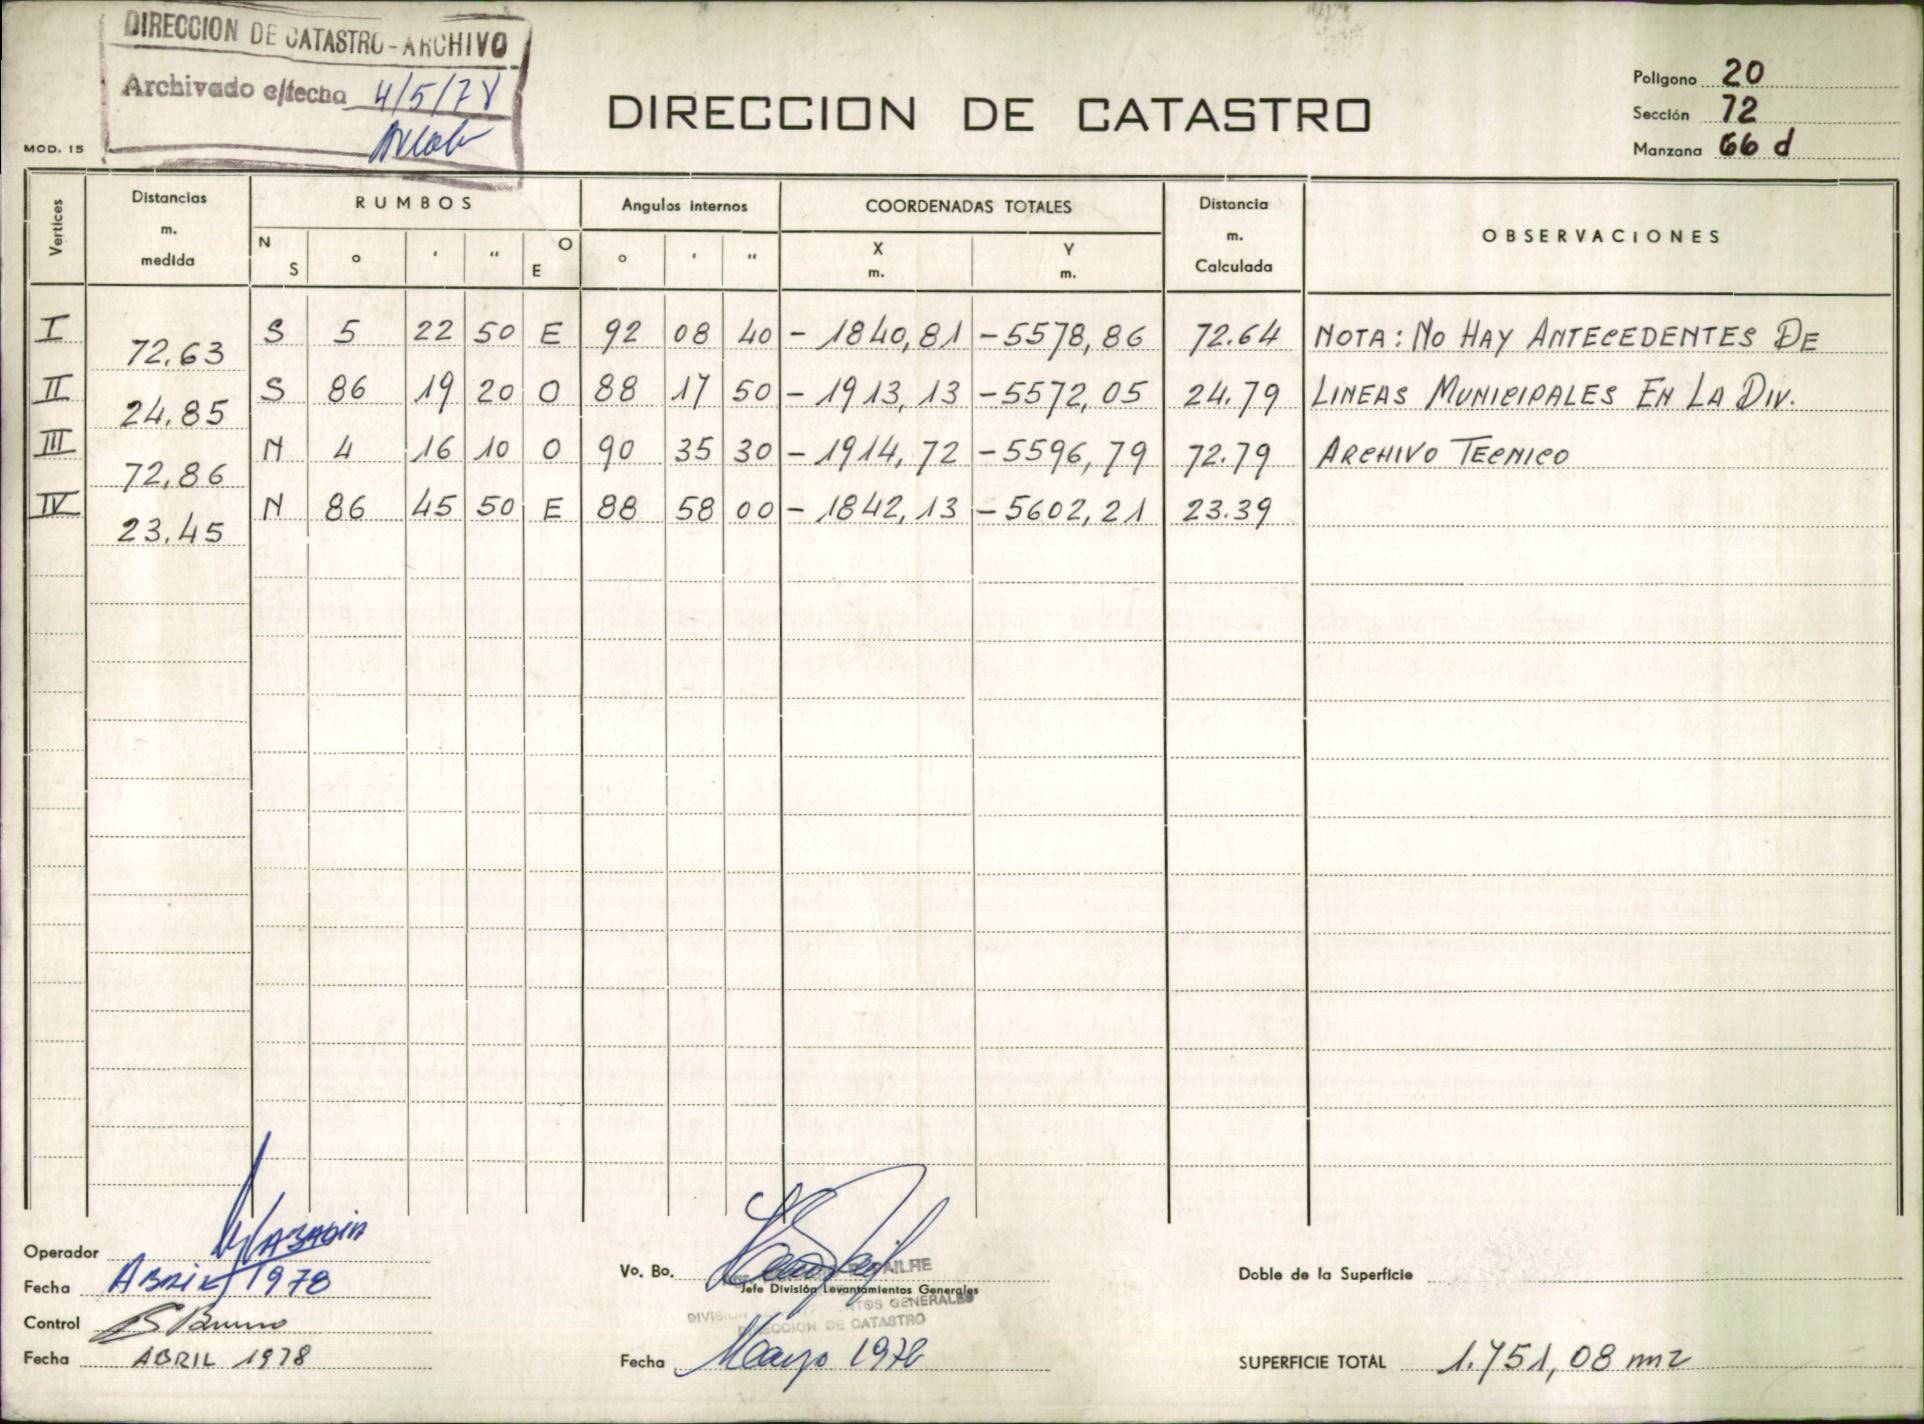 DIRECCION DE CATASTRO - ARCHIVO
Archivado c/fecha 4/5/78
MOD. 15
DIRECCION DE CATASTRO
Polígono 20
Sección 72
Manzana 66 d
Vertices
Distancias m. medida
RUMBOS
Angulos internos
COORDENADAS TOTALES
Distancia m. Calculada
OBSERVACIONES
N S ° ' " O E
° ' "
X m. Y m.
I 72,63 S 5 22 50 E 92 08 40 - 1840,81 - 5578,86 72.64 NOTA: NO HAY ANTECEDENTES DE
II 24,85 S 86 19 20 O 88 17 50 - 1913,13 - 5572,05 24.79 LINEAS MUNICIPALES EN LA DIV.
III 72,86 N 4 16 10 O 90 35 30 - 1914,72 - 5596,79 72.79 ARCHIVO TECNICO
IV 23,45 N 86 45 50 E 88 58 00 - 1842,13 - 5602,21 23.39
Operador
Fecha ABRIL 1978
Control
Fecha ABRIL 1978
Vo. Bo.
Jefe División Levantamientos Generales
GENERALES
DE CATASTRO
Fecha Mayo 1978
Doble de la Superficie
SUPERFICIE TOTAL 1.751,08 m2